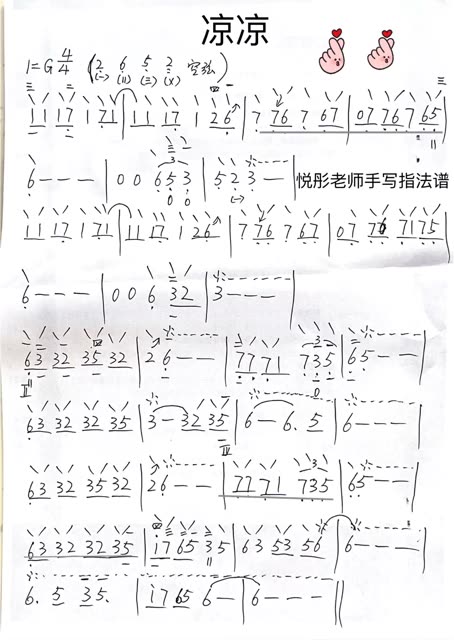 凉凉
1=G 4/4 (2 6 5 2 空弦)
(一) (二) (三) (乂)
1117 171 | 1117 126 | 776 767 | 0776765 |
6--- | 00653 | 523- | 悦彤老师手写指法谱
1117 171 | 1117 126 | 776 767 | 0776 7175 |
6--- | 00632 | 3--- |
63 32 35 32 | 26-- | 7771 735 | 65-- |
63 32 32 35 | 3-3235 | 6-6.5 | 6--- |
63 32 35 32 | 26-- | 7771 735 | 65-- |
63 32 32 35 | 176535 | 63 53 56 | 6--- |
6. 5 35. | 1765 6- | 6--- ||